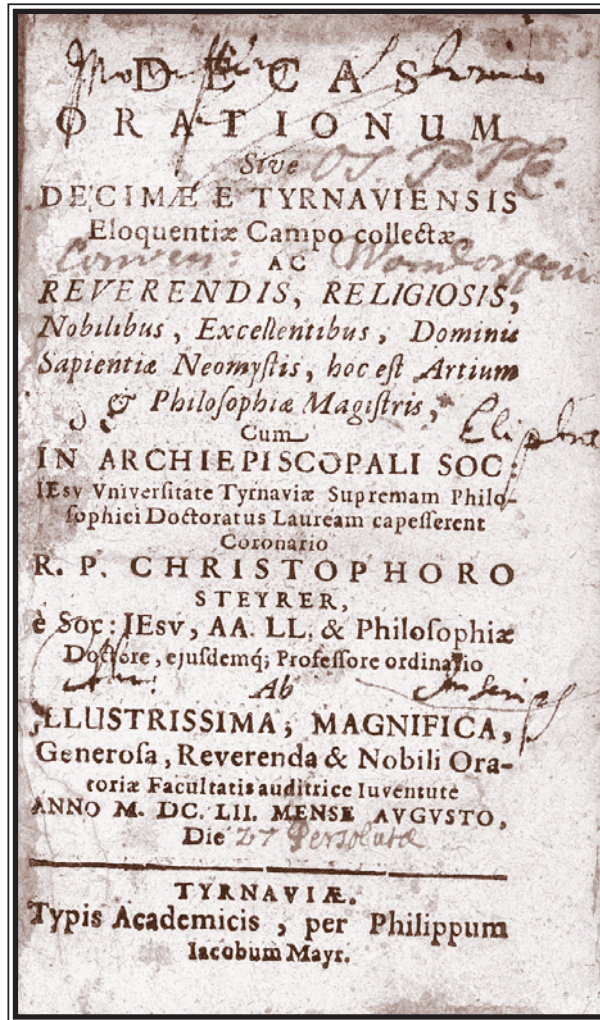 DECAS
ORATIONUM
Sive
DECIMÆ E TYRNAVIENSIS
Eloquentiæ Campo collectæ,
AC
REVERENDIS, RELIGIOSIS,
Nobilibus, Excellentibus, Dominis
Sapientiæ Neomyſtis, hoc eſt Artium
& Philoſophiæ Magiſtris,
Cum
IN ARCHIEPISCOPALI SOC:
IEsv Vniverſitate Tyrnaviæ Supremam Philo-
ſophici Doctoratus Lauream capeſſerent
Coronario
R. P. CHRISTOPHORO
STEYRER,
è Soc: IEsv, AA. LL. & Philoſophiæ
Doctore, ejuſdemq; Profeſſore ordinario
Ab
ILLUSTRISSIMA, MAGNIFICA,
Generoſa, Reverenda & Nobili Ora-
toriæ Facultatis auditrice Iuventute
ANNO M. DC. LII. MENSE AVGVSTO,
Die 27 Persolutæ
TYRNAVIÆ.
Typis Academicis, per Philippum
Iacobum Mayr.